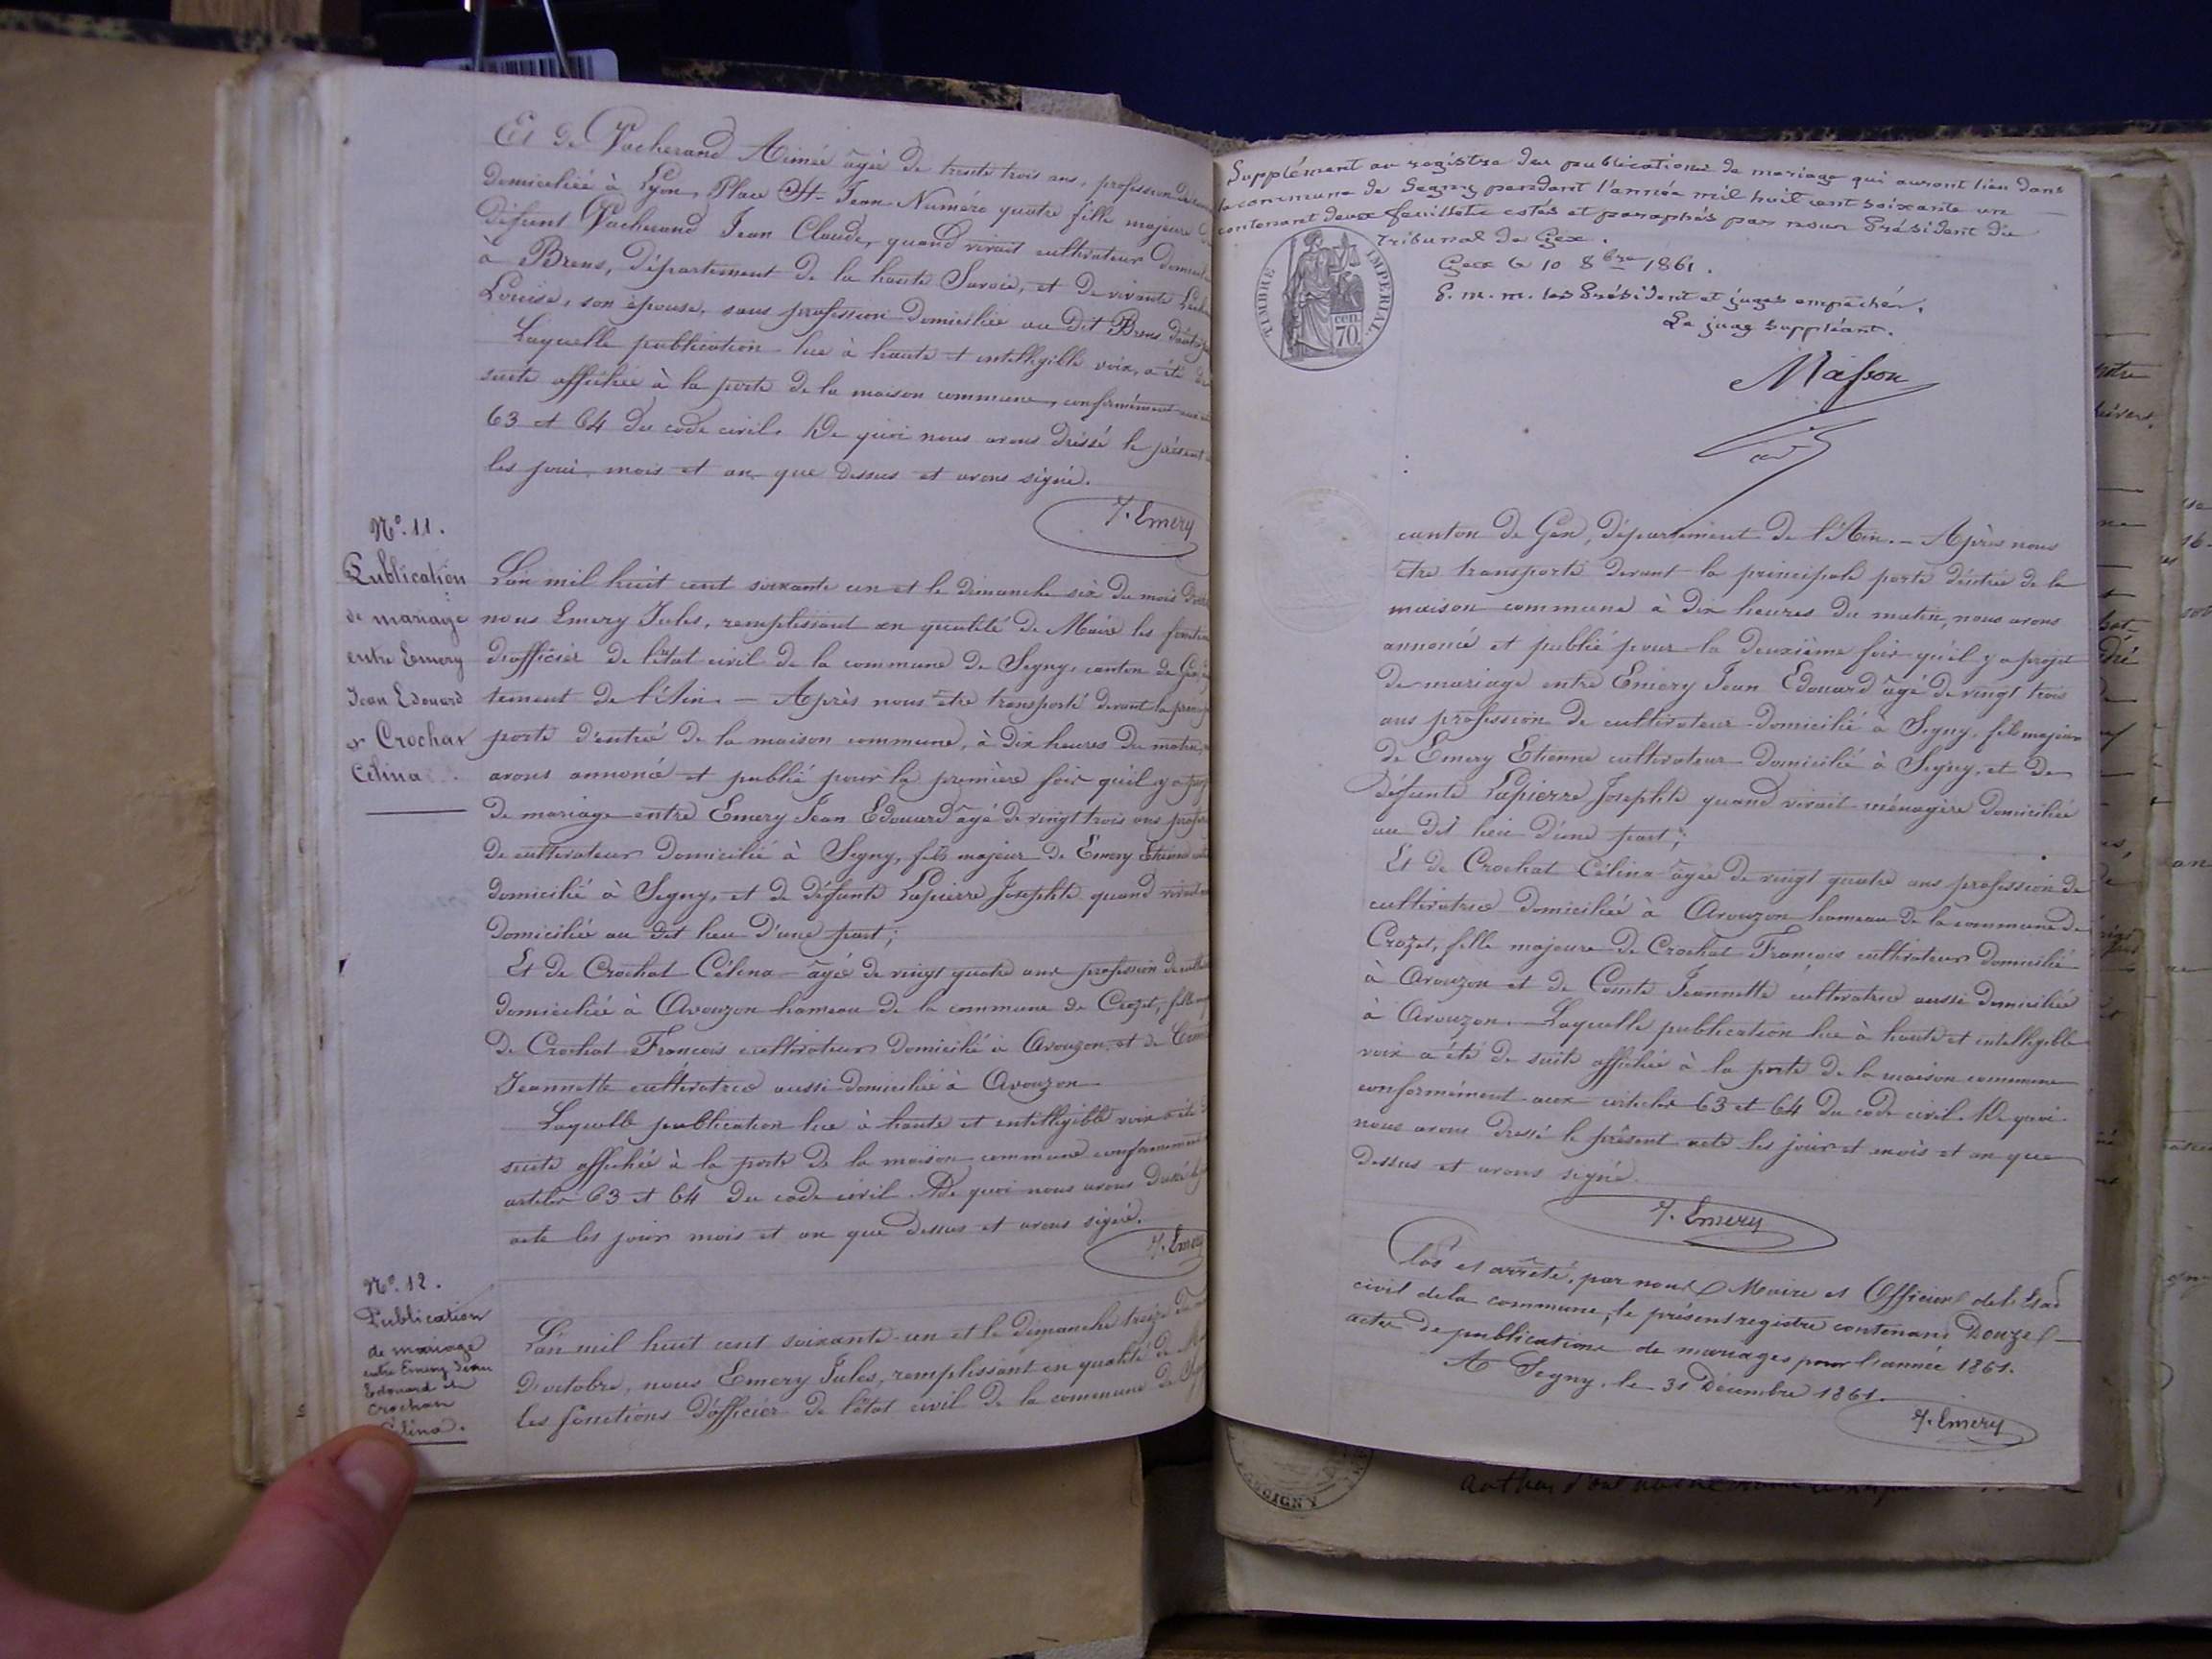 Et de Vacherand Aimée âgée de trente trois ans, profession de
domiciliée à Lyon, Place St- Jean Numéro quatre fille majeure
défunt Vacherand Jean Claude, quand vivait cultivateur
à Brens, département de la haute Savoie, et de vivante
Louise, son épouse, sans profession domiciliée au dit Brens
Laquelle publication lue à haute et intelligible voix, a été de
suite affichée à la porte de la maison commune, conformément
63 et 64 du code civil. De quoi nous avons dressé le présent
les jour, mois et an que dessus et avons signé.
J. Emery
N°. 11.
Publication
de mariage
entre Emery
Jean Edouard
et Crochat
Célina
L'an mil huit cent soixante un et le dimanche six du mois
nous Emery Jules, remplissant en qualité de Maire les
d'officier de l'état civil de la commune de Segny, canton de Gex,
tement de l'Ain. — Après nous être transporté devant la
porte d'entrée de la maison commune, à dix heures du matin,
avons annoncé et publié pour la première fois qu'il y a
de mariage entre Emery Jean Edouard âgé de vingt trois ans
de cultivateur domicilié à Segny, fils majeur de Emery Etienne
domicilié à Segny, et de défunte Lapierre Josephte quand vivait
domiciliée au dit lieu d'une part;
Et de Crochat Célina âgée de vingt quatre ans profession de
domiciliée à Avouzon hameau de la commune de Crozet, fille
de Crochat François cultivateur domicilié à Avouzon et de
Jeannette cultivatrice aussi domiciliée à Avouzon
Laquelle publication lue à haute et intelligible voix a été
suite affichée à la porte de la maison commune conformément
articles 63 et 64 du code civil. De quoi nous avons dressé
acte les jour mois et an que dessus et avons signé.
J. Emery
N°. 12.
Publication
de mariage
entre Emery Jean
Edouard et
Crochat
Célina.
L'an mil huit cent soixante-un et le dimanche treize du
d'octobre, nous Emery Jules, remplissant en qualité de
les fonctions d'officier de l'état civil de la commune de
Supplément au registre des publications de mariage qui auront lieu dans
la commune de Segny pendant l'année mil huit cent soixante un
contenant deux feuillets cotés et paraphés par nous Président du
Tribunal de Gex.
Gex le 10 8bre 1861.
P. m. m. les Président et juges empêchés.
Le juge suppléant.
TIMBRE IMPERIAL
70 cen.
Masson
canton de Gex, département de l'Ain. — Après nous
être transporté devant la principale porte d'entrée de la
maison commune à dix heures du matin, nous avons
annoncé et publié pour la deuxième fois qu'il y a projet
de mariage entre Emery Jean Edouard âgé de vingt trois
ans profession de cultivateur domicilié à Segny, fils majeur
de Emery Etienne cultivateur domicilié à Segny, et de
défunte Lapierre Josephte quand vivait ménagère domiciliée
au dit lieu d'une part;
Et de Crochat Célina âgée de vingt quatre ans profession de
cultivatrice domiciliée à Avouzon hameau de la commune de
Crozet, fille majeure de Crochat François cultivateur domicilié
à Avouzon et de Comte Jeannette cultivatrice aussi domiciliée
à Avouzon. Laquelle publication lue à haute et intelligible
voix a été de suite affichée à la porte de la maison commune
conformément aux articles 63 et 64 du code civil. De quoi
nous avons dressé le présent acte les jour et mois et an que
dessus et avons signé.
J. Emery
Clos et arrêté, par nous Maire et Officier de l'Etat
civil de la commune, le présent registre contenant Douze
actes de publications de mariages pour l'année 1861.
A Segny, le 31 Décembre 1861.
J. Emery